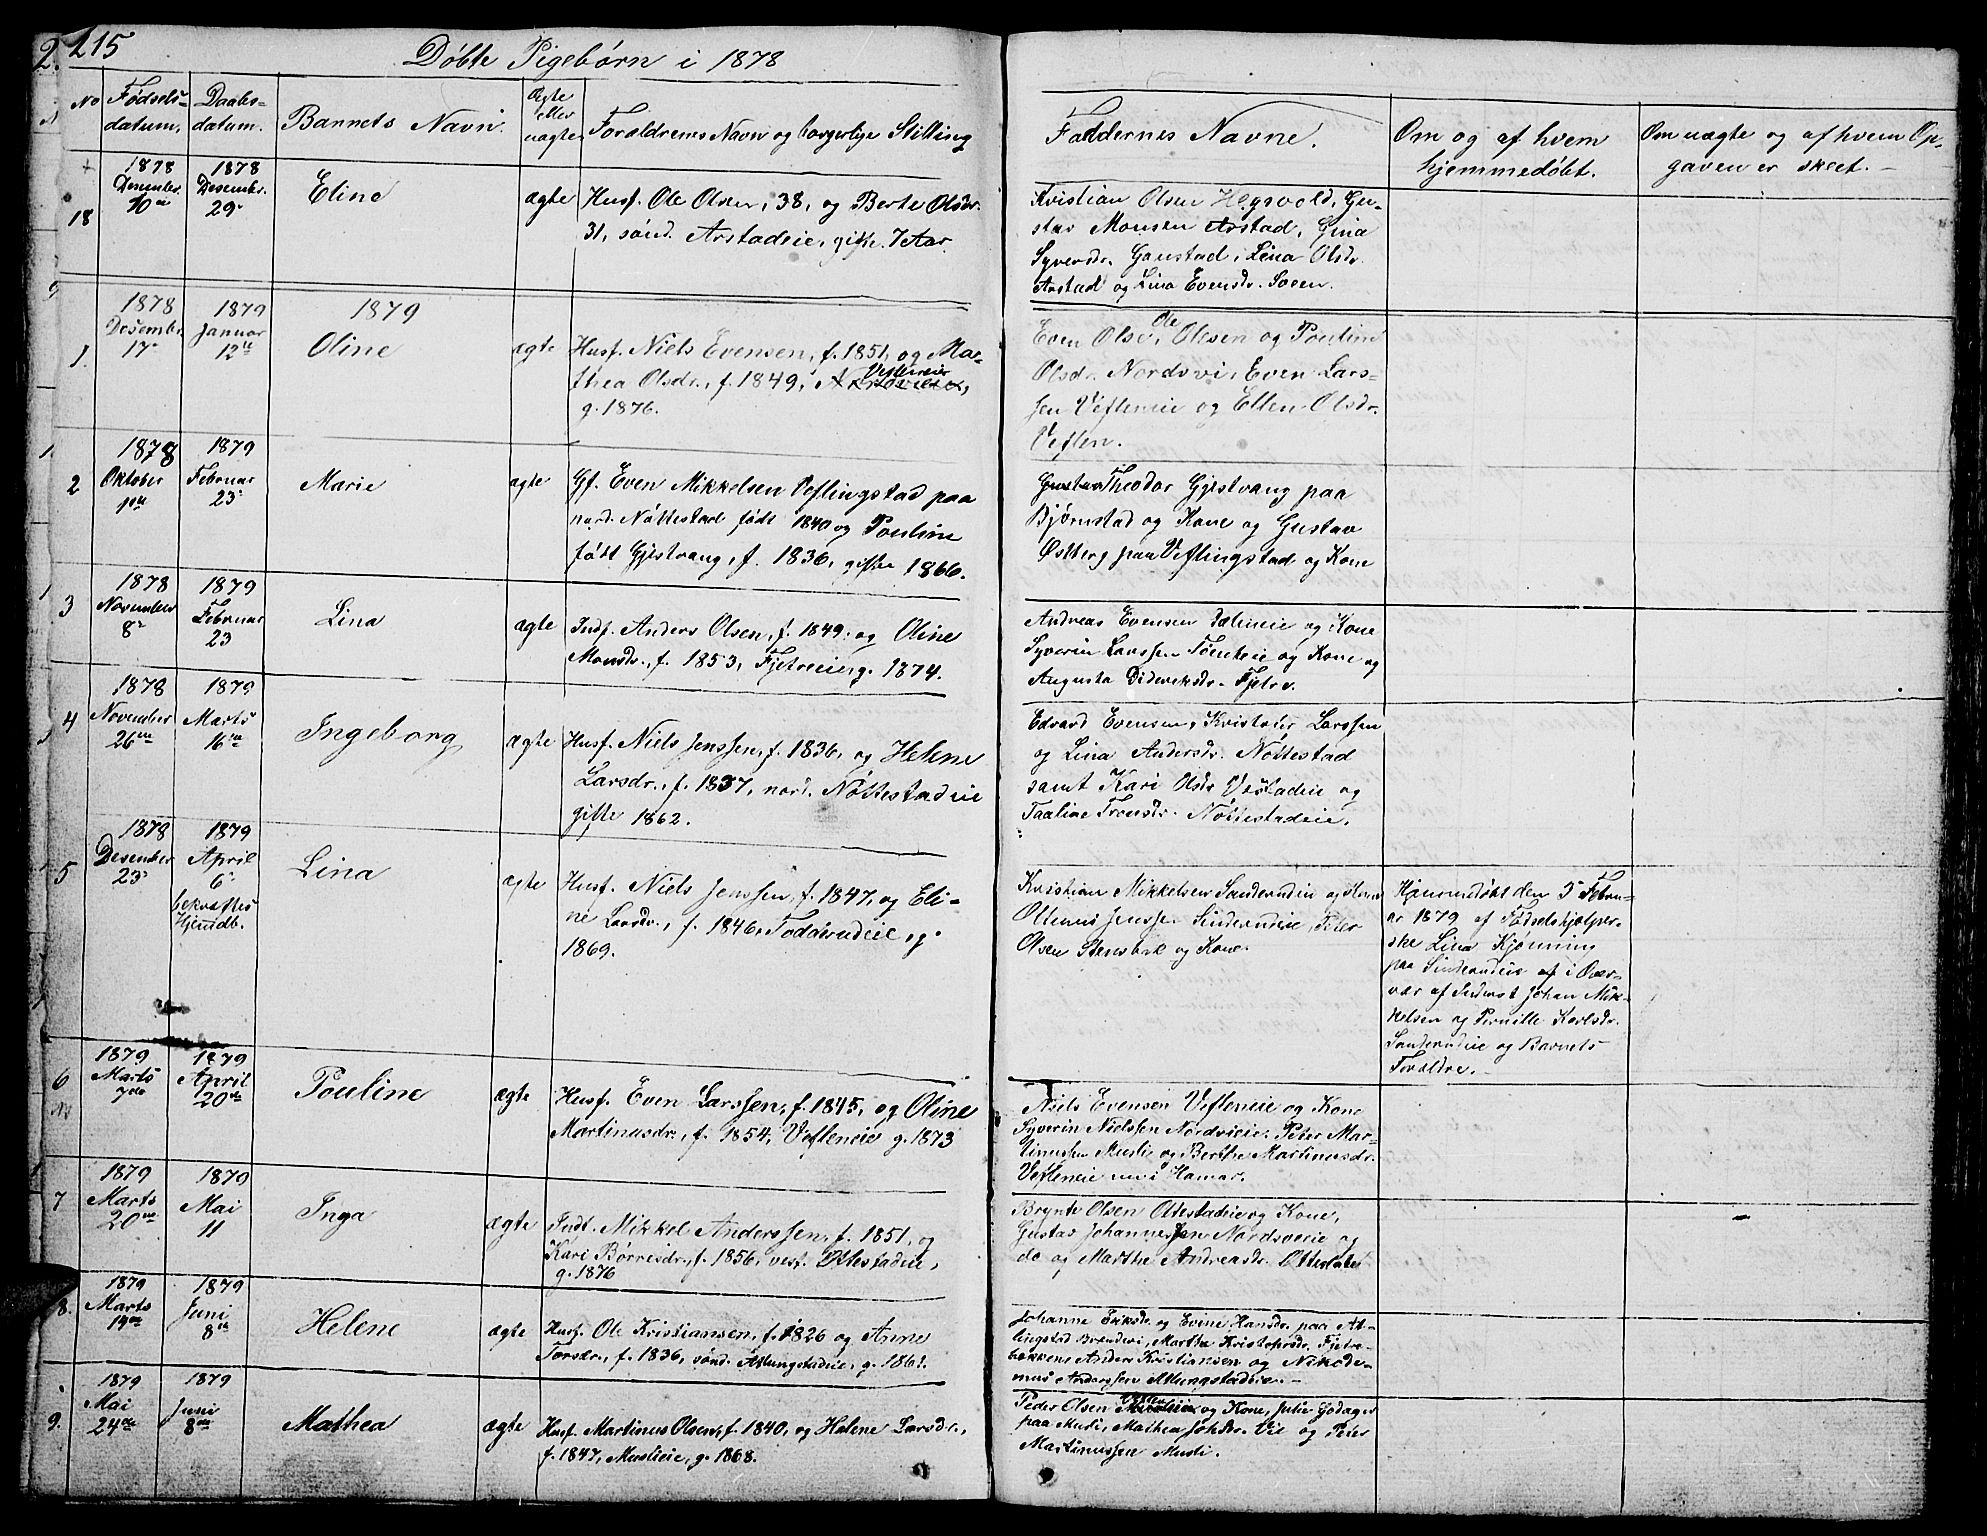 2. 215
Døbte Pigebørn i 1878
No
Fødsels-
datum.
Daabs-
datum.
Barnets Navn.
Ægte
eller
uægte
Forældrenes Navn og borgerlige Stilling
Faddernes Navne.
Om og af hvem
hjemmedøbt.
Om uægte og af hvem Op-
gaven er skeet. –
18
1878
Desember
10de
1878
Desembr.
29de
Eline
ægte
Husf. Ole Olsen, 38, og Berte Olsdr.
31, sønd. Arstadeie, gifte 7 Aar.
Kristian Olsen Hegsvold, Gu-
stav Monsen Arstad, Gina
Syversdr. Gaustad, Lina Olsdr.
Arstad og Lina Evensdr. Soen.
1879
1.
1878
Desember
17de
1879
Januar
12te
Oline
ægte
Husf. Niels Evensen, f. 1851, og Ma-
thea Olsdr., f. 1849, Vefleneie
g. 1876.
Even Olse, Ole Olesen og Pouline
Olsdr. Nordsvi, Even Lars-
sen Vefleneie og Ellen Olsdr.
Veflen.
2
1878
Oktober
1879
Februar
23
Marie
ægte
Gf. Even Mikkelsen Veflingstad paa
nord. Nøttestad født 1840 og Pouline
født Gjestvang, f. 1836, gifte 1866.
Gustav Theodor Gjestvang paa
Bjørnstad og Kone og Gustav
Østberg paa Veflingstad og Kone
3
1878
November
8de
1879
Februar
23
Lina
ægte
Indf. Anders Olsen, f. 1849, og Oline
Monsdr., f. 1853, Fjetreeie g. 1874.
Andreas Evensen Dæleneie og Kone
Syverin Larssen Tomteeie og Kone og
Augusta Dideriksdr. Fjetre.
4
1878
November
26de
1879
Marts
16de
Ingeborg
ægte
Husf. Niels Jenssen, f. 1836, og Helene
Larsdr., f. 1837, nord. Nøttestadeie
gifte 1862.
Edvard Evensen, Kristofer Larssen
og Lina Andersdr. Nøttestad
samt Kari Olsdr. Vestadeie og
Taaline Tronsdr. Nøttestadeie.
5
1878
Desember
23de
1879
April
6te
bekræftes
Hjemdb.
Lina
ægte
Husf. Niels Jenssen, f. 1847, og Eli-
ne Larsdr., f. 1846, Fodderudeie, g.
1869.
Kristian Mikkelsen Sanderudeie og Kone
Ottenius Jenssen Sinderudeie, Peter
Olsen Stensbæk og Kone.
Hjemmedøbt den 3de Febru-
ar 1879 af Fødselshjælper-
ske Lina Kjønning
paa Sinderudeie af i Over-
vær af Inderst Johan Mik-
kelsen og Pernille Karlsdr.
Sanderudeie og Barnets
Forældre. –
6
1879
Marts
7de
1879
April
20de
Pouline
ægte
Husf. Even Larssen, f. 1845, og Oline
Martinusdr., f. 1854, Vefleneie g. 1873
Niels Evensen Vefleneie og Kone
Syverin Nielssen Nordsvieie. Peter Mar-
tinussen Muslie og Berthe Martinusdr.
Vefleneie nu i Hamar.
7
1879
Marts
20de
1879
Mai
11
Inga
ægte
Indt. Mikkel Anderssen, f. 1851, og
Kari Børresdr., f. 1856, vest. Ottestadeie,
g. 1876
Brynte Olsen Ottestadeie og Kone,
Gustav Johannessen Nordsveeie og
do og Marthe Andreasdr. Ottestadei
8.
1879
Marts
14de
1879
Juni
8de
Helene
ægte
Husf. Ole Kristiansen, f. 1826 og Anne
Torsdr., f. 1836, sønd. Atlungstadeie, g. 1861.
Johanne Eriksdr. og Evine Hansdr. paa At-
lungstad Brænderi, Marthe Kristofersdr. Fjetre-
bakken, Anders Kristiansen og Nikode-
mus Anderssen Atlungstadeie. –
9.
1879
Mai
24de
1879
Juni
8de
Mathea
ægte
Husf. Martinus Olsen, f. 1840, og Helene Larsdr.,
f. 1847, Muslieie, g. 1868.
Peder Olsen og Kone, Julie Godager
paa Musli, Mathea Johsdr. Vie og Peter
Martinussen Musli.